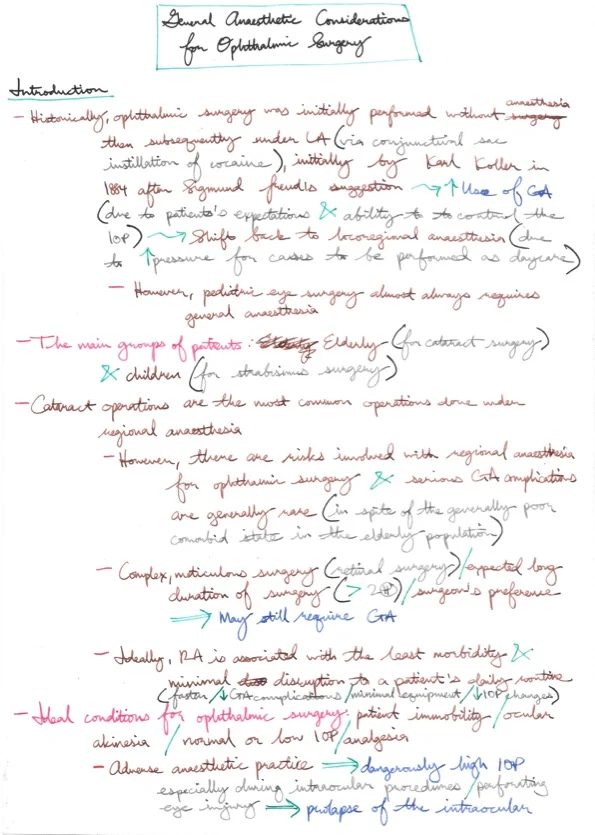 General Anaesthetic Considerations
for Ophthalmic Surgery
Introduction
- Historically, ophthalmic surgery was initially performed without surgery anaesthesia
then subsequently under LA (via conjunctival sac
instillation of cocaine), initially by Karl Koller in
1884 after Sigmund freud's suggestion ⟿ ↑ Use of GA
(due to patients's expectations & ability to to control the
IOP) ⟿ Shift back to locoregional anaesthesia (due
to ↑pressure for cases to be performed as daycare)
- However, pediatric eye surgery almost always requires
general anaesthesia
- The main groups of patients: Elderly (for cataract surgery)
& children (for strabismus surgery)
- Cataract operations are the most common operations done under
regional anaesthesia
- However, there are risks involved with regional anaesthesia
for ophthalmic surgery & serious GA complications
are generally rare (in spite of the generally poor
comorbid state in the elderly population)
- Complex, meticulous surgery (retinal surgery)/expected long
duration of surgery (> 2H)/surgeon's preference
⟹ May still require GA
- Ideally, RA is associated with the least morbidity &
minimal disruption to a patient's daily routine
(faster/↓GA complications/minimal equipment/↓IOP changes)
- Ideal conditions for ophthalmic surgery: patient immobility/ocular
akinesia/normal or low IOP/analgesia
- Adverse anaesthetic practice ⟹ dangerously high IOP
especially during intraocular procedures/perforating
eye injury ⟹ prolapse of the intraocular